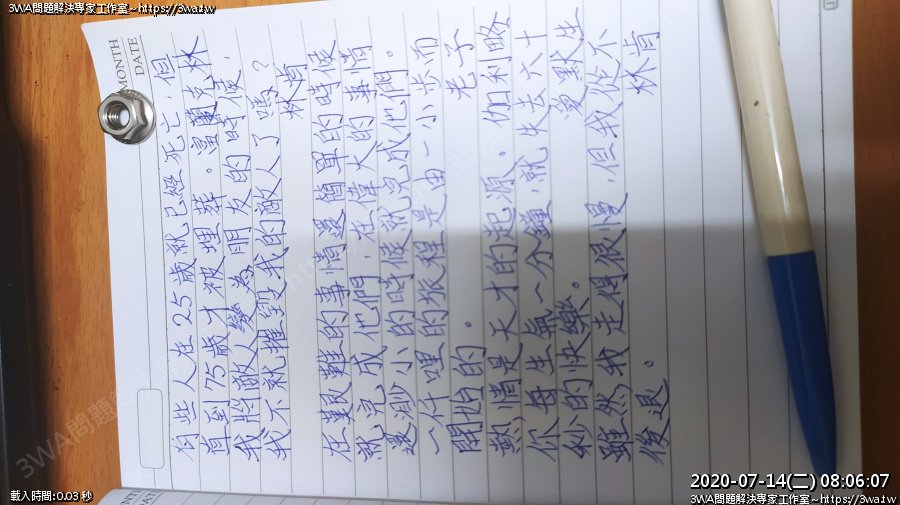 3WA問題解決專家工作室~https://3wa.tw
MONTH
DATE
有些人在25歲就已經死亡,但
直到75歲才被埋葬。富蘭克林
我將敵人變為朋友的時候,
我不就摧毀我的敵人了嗎?
林肯
在艱難的事情還簡單的時候
就完成他們,在偉大的事情
還渺小的時候就完成他們。
一千哩的旅程是由一小步而
開始的。老子
熱情是天才的起源。伽利略
你每生氣一分鐘,就失去六十
秒的快樂。愛默生
雖然我走得很慢,但我從不
後退。林肯
載入時間:0.03 秒
2020-07-14(二) 08:06:07
3WA問題解決專家工作室~https://3wa.tw